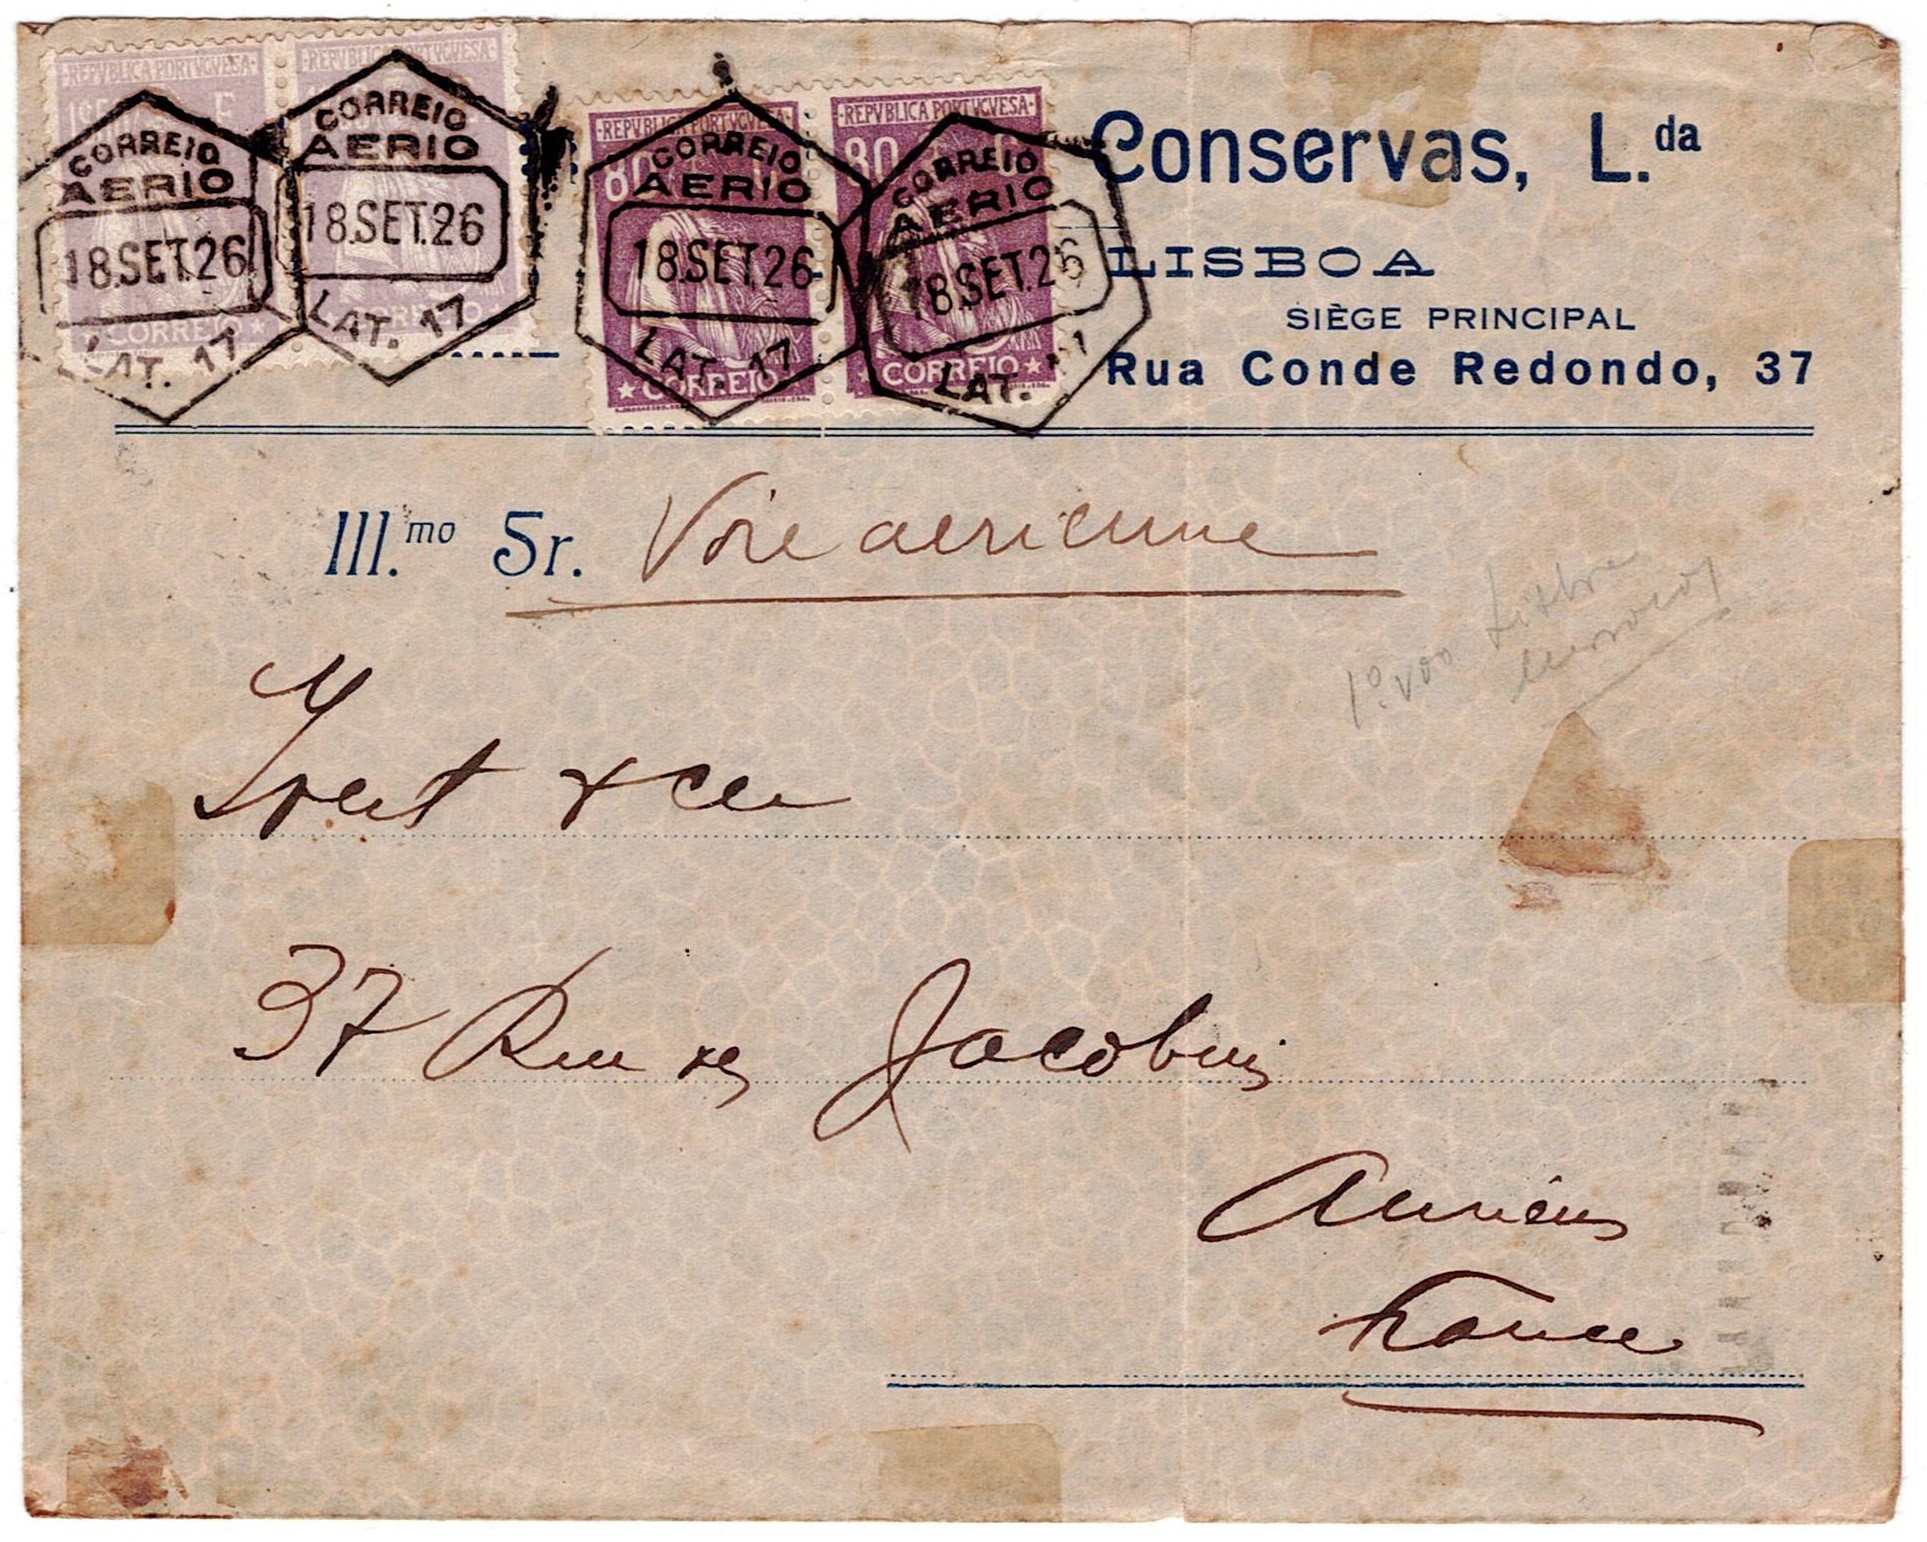 ·REPVBLICA PORTVGVESA·
·REPVBLICA PORTVGVESA·
CORREIO
AERIO
18.SET.26
LAT. 17
CORREIO
AERIO
18.SET.26
LAT. 17
CORREIO
·REPVBLICA PORTVGVESA·
80
CORREIO
AERIO
18.SET.26
LAT. 17
CORREIO
·REPVBLICA PORTVGVESA·
80
CORREIO
AERIO
18.SET.26
LAT.
CORREIO
Conservas, L.da
LISBOA
SIÈGE PRINCIPAL
Rua Conde Redondo, 37
Ill.mo Sr. Voie aerienne
1º voo Lisboa
& Cie
37 Rue des Jacobins
Amiens
France